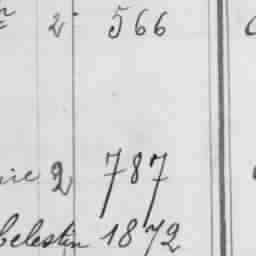 2 566
2 787
Celestin 1872